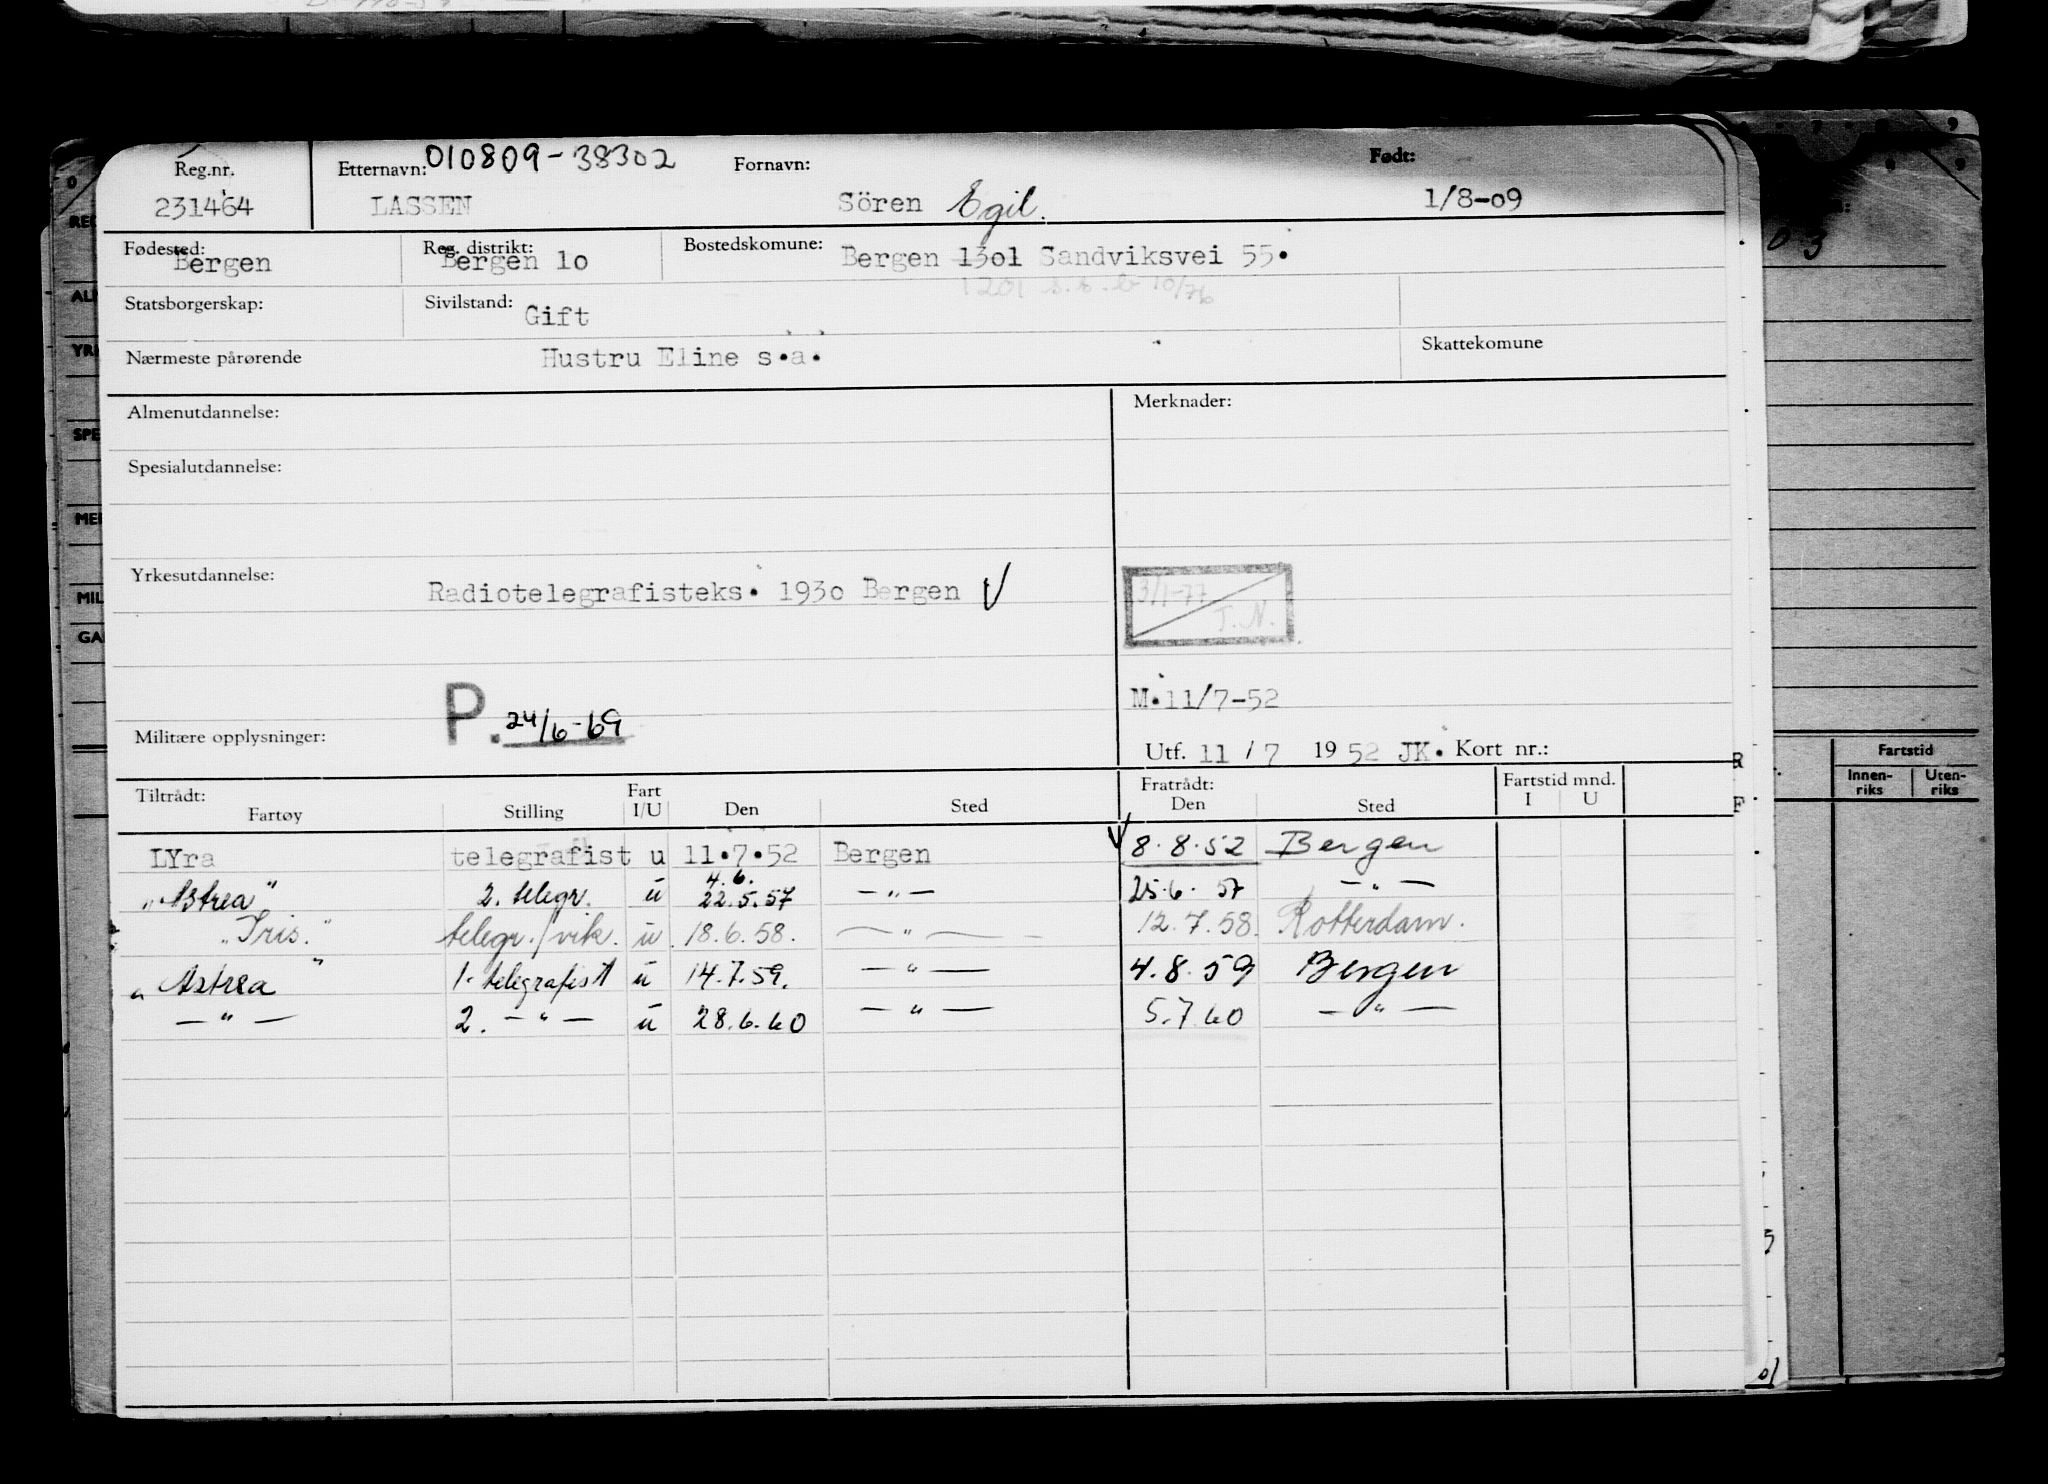 Reg.nr. Etternavn: 010809-38302 Fornavn: Født:
231464 LASSEN Sören Egil. 1/8-09
Fødested: Bergen Reg. distrikt: Bergen 1o Bostedskommune: Bergen 13o1 Sandviksvei 55.
1201 10/76
Statsborgerskap: Sivilstand: Gift
Nærmeste pårørende Hustru Eline s.a. Skattekomune
Almenutdannelse: Merknader:
Spesialutdannelse:
Yrkesutdannelse: Radiotelegrafisteks. 193o Bergen V
3/1-77 T.N.
M.11/7-52
Militære opplysninger: P. 24/6-69
Utf. 11/7 1952 JK. Kort nr.:
Tiltrådt: Fart Fratrådt: Fartstid mnd.
Fartøy Stilling I/U Den Sted Den Sted I U
LYra telegrafist u 11.7.52 Bergen V 8.8.52 Bergen
4.6.
"Astrea" 2. telegr. u 22.5.57 —"— 25.6.57 —"—
"Iris." telegr./vik. u 18.6.58. —"— 12.7.58. Rotterdam.
"Astrea" 1. telegrafist u 14.7.59. —"— 4.8.59 Bergen
—"— 2. —"— u 28.6.60 —"— 5.7.60 —"—
Fartstid
Innen-riks Uten-riks